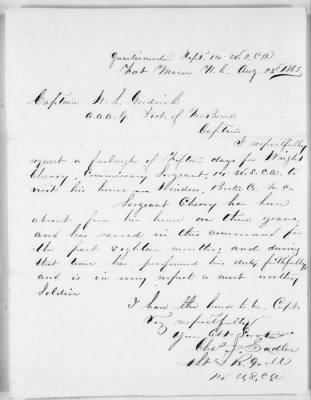 Quartermaster Dept. 14 U.S.C.A
Fort Macon N.C. Aug 23d 1865
Captain
A.A.A.G. Dist. of New Berne
Captain
I respectfully
request a furlough of fifteen days for Wright
Cherry, Commissary Sergeant, 14 U.S.C.A. to
visit his home in Windsor, Bertie Co. N.C.
Sergeant Cherry has been
absent from his home on three years,
and has served in this command for
the past eighteen months, and during
that time has performed his duty faithfully,
and is in every respect a most worthy
Soldier
I have the honor to be, Capt.
Very respectfully
Your Obt Servt
Chas J. Sadler
14 U.S.C.A